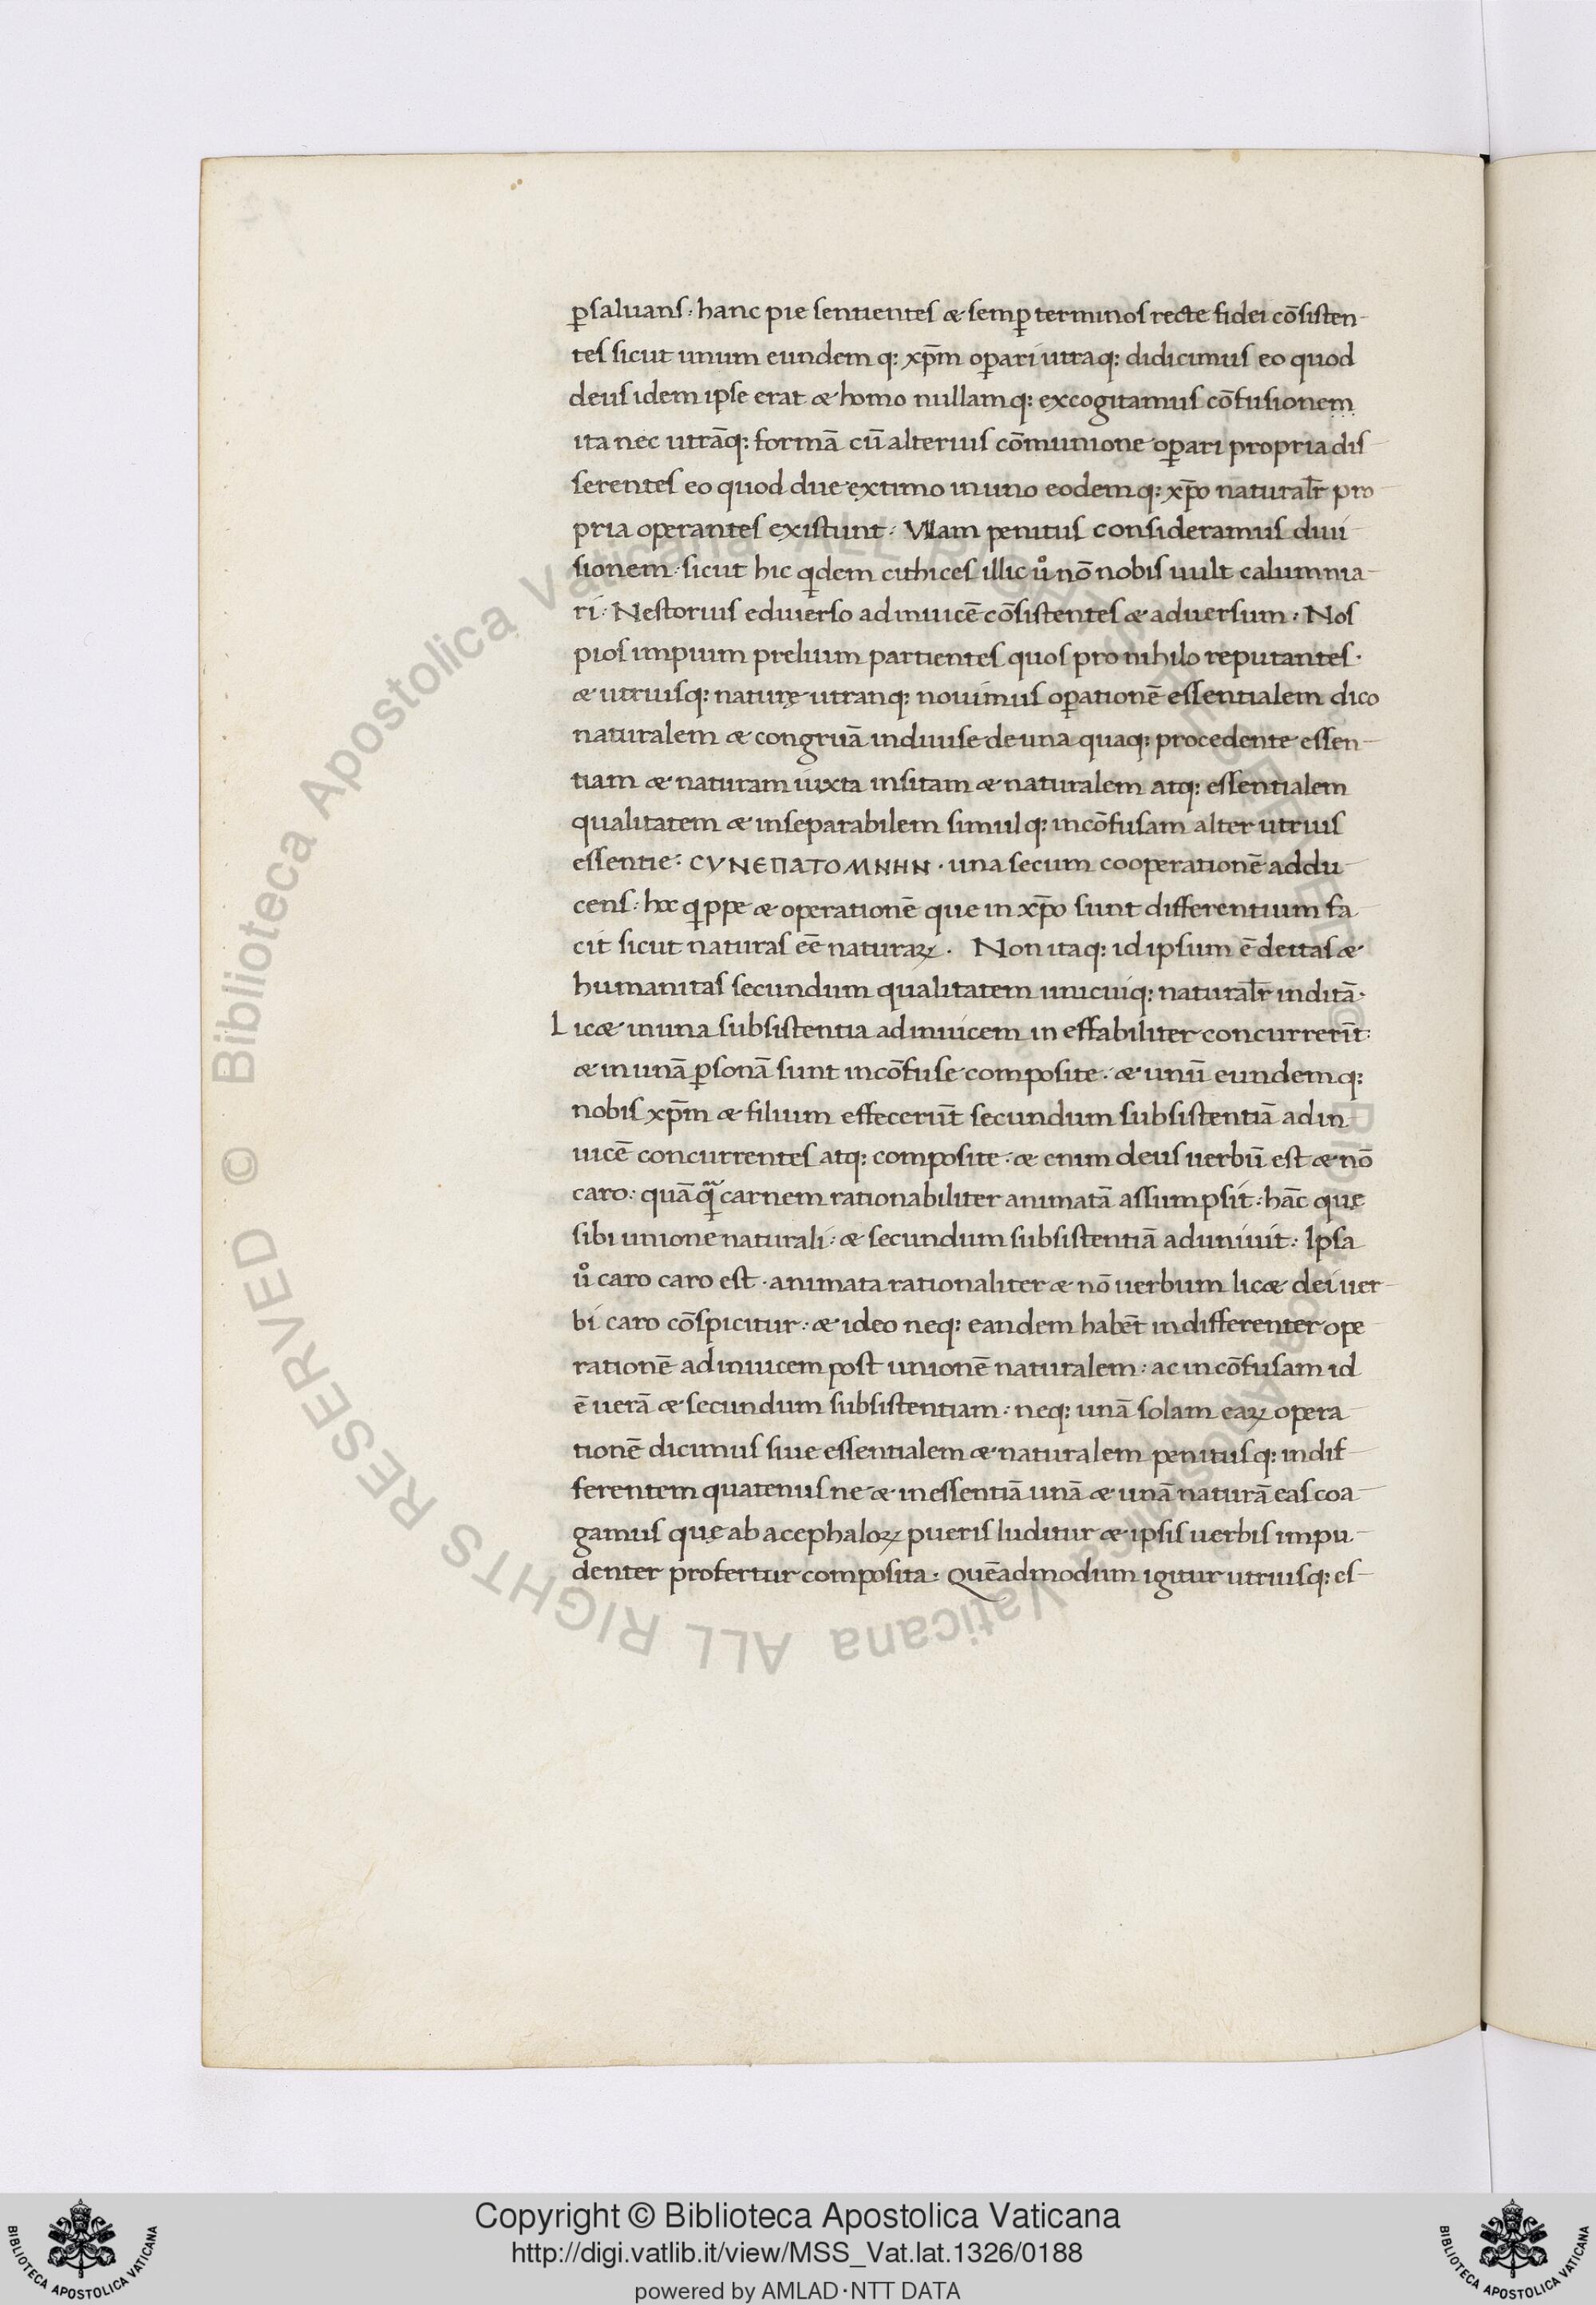 ꝑsaluans· hanc pie sentientes & semꝑ terminos recte fidei cōsisten-
tes sicut unum eundem q: xp̄m oꝑari utraq: didicimus eo quod
deus idem ipse erat & homo nullamq: excogitamus cōfusionem
ita nec utrāq: formā cū alterius cōmunione oꝑari propria dis-
serentes eo quod due extimo in uno eodemq: xp̄o naturalr̄ pro-
pria operantes existunt· Vllam penitus consideramus diui-
sionem· sicut hic qdem cithices illic uͦ nō nobis uult calumnia-
ri· Nestorius eduuerso adinuicē cōsistentes & aduersum· Nos
pios impium prelium partientes quos pro nihilo reputantes·
& utriusq: naturę utranq: nouimus oꝑationē essentialem dico
naturalem & congruā indiuise de una quaq: procedente essen-
tiam & naturam iuxta insitam & naturalem atq: essentialem
qualitatem & inseparabilem simulq: incōfusam alter utrius
essentie· CYNEΠATOMNHN· una secum cooperationē addu-
cens· hoc qppe & operationē que in xp̄o sunt differentium fa-
cit sicut naturas eē naturaꝝ· Non itaq: id ipsum ē deitas &
humanitas secundum qualitatem unicuiq: naturalr̄ inditā·
Lic& in una subsistentia adinuicem in effabiliter concurrerīt:
& in unā ꝑsonā sunt incōfuse composite· & unū eundemq:
nobis xp̄m & filium effecerūt secundum subsistentiā adin-
uicē concurrentes atq: composite· & enim deus uerbū est & nō
caro· quāqᷓ carnem rationabiliter animatā assumpsit· hāc quę
sibi unione naturali· & secundum subsistentiā aduniuit· Ipsa
uͦ caro caro est· animata rationaliter & nō uerbum lic& dei uer-
bi caro cōspicitur· & ideo neq: eandem habēt indifferenter ope-
rationē adinuicem post unionē naturalem· ac incōfusam id
ē uerā & secundum subsistentiam· neq: unā solam eaꝝ opera-
tionē dicimus siue essentialem & naturalem penitusq: indif-
ferentem quatenus ne & in essentiā unā & unā naturā eas coa-
gamus quę ab acephaloꝝ pueris luditur & ipsis uerbis impu-
denter profertur composita· Quēadmodum igitur utriusq: es-
© Biblioteca Apostolica Vaticana ALL RIGHTS RESERVED
Copyright © Biblioteca Apostolica Vaticana
http://digi.vatlib.it/view/MSS_Vat.lat.1326/0188
powered by AMLAD·NTT DATA
BIBLIOTECA APOSTOLICA VATICANA
BIBLIOTECA APOSTOLICA VATICANA